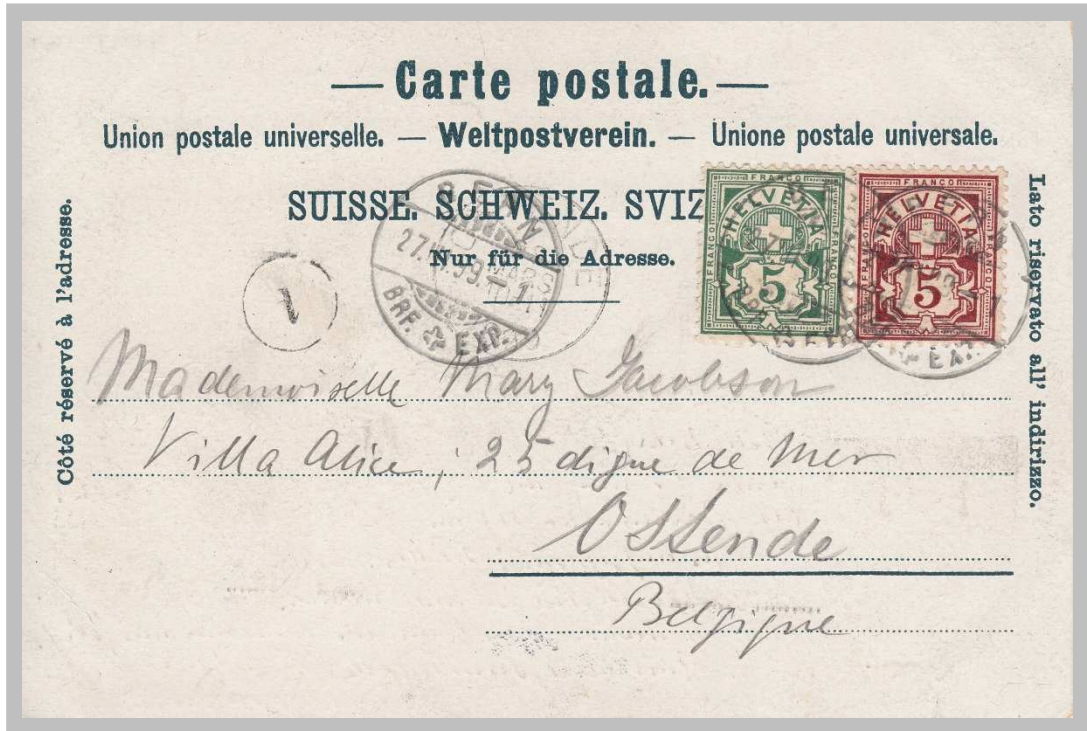 — Carte postale. —
Union postale universelle. — Weltpostverein. — Unione postale universale.
SUISSE. SCHWEIZ. SVIZ
Nur für die Adresse.
Côté réservé à l'adresse.
Lato riservato all' indirizzo.
FRANCO
HELVETIA
5
FRANCO
HELVETIA
5
BERN
BRF. EXP.
1
Mademoiselle Mary Jacobson
Villa Alice, 25 digue de Mer
Ostende
Belgique